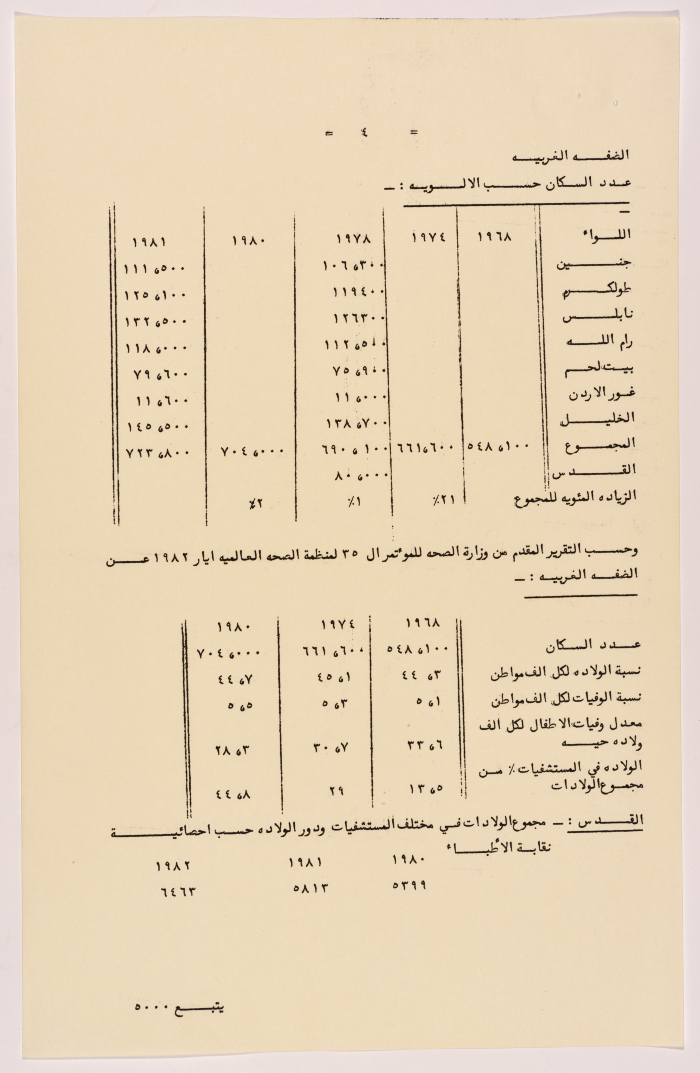 = ٤ =
الضفــه الغربيــه
عــدد السكان حســب الالــويــه : ــ
اللــواء ١٩٦٨ ١٩٧٤ ١٩٧٨ ١٩٨٠ ١٩٨١
جنــين ١٠٦,٣٠٠ ١١١,٥٠٠
طولكــرم ١١٩٤٠٠ ١٢٥,١٠٠
نابلــس ١٢٦٣٠٠ ١٣٢,٥٠٠
رام اللــه ١١٢,٥٠٠ ١١٨,٠٠٠
بيــت لحــم ٧٥,٩٠٠ ٧٩,٦٠٠
غــور الاردن ١١,٠٠٠ ١١,٦٠٠
الخليــل ١٣٨,٧٠٠ ١٤٥,٥٠٠
المجمــوع ٥٤٨,١٠٠ ٦٦١,٦٠٠ ٦٩٠,١٠٠ ٧٠٤,٠٠٠ ٧٢٣,٨٠٠
القــدس ٨٠,٠٠٠
الزياده المئويه للمجموع ٢١٪ ١٪ ٢٪
وحســب التقرير المقدم من وزارة الصحه للموءتمر ال ٣٥ لمنظمة الصحه العالميه ايار ١٩٨٢ عــن
الضفــه الغربيــه : ــ
١٩٦٨ ١٩٧٤ ١٩٨٠
عــدد السكان ٥٤٨,١٠٠ ٦٦١,٦٠٠ ٧٠٤,٠٠٠
نسبة الولاده لكل الف مواطن ٤٤,٣ ٤٥,١ ٤٤,٧
نسبة الوفيات لكل الف مواطن ٥,١ ٥,٣ ٥,٥
معدل وفيات الاطفال لكل الف
ولاده حيــه ٣٣,٦ ٣٠,٧ ٢٨,٣
الولاده في المستشفيات ٪ مــن
مجموع الولادات ١٣,٥ ٢٩ ٤٤,٨
القــدس : ــ مجموع الولادات فــي مختلف المستشفيات ودور الولاده حسب احصائيــة
نقابة الأطبــاء
١٩٨٠ ١٩٨١ ١٩٨٢
٥٣٩٩ ٥٨١٣ ٦٤٦٣
يتبــع ٥٠٠٠